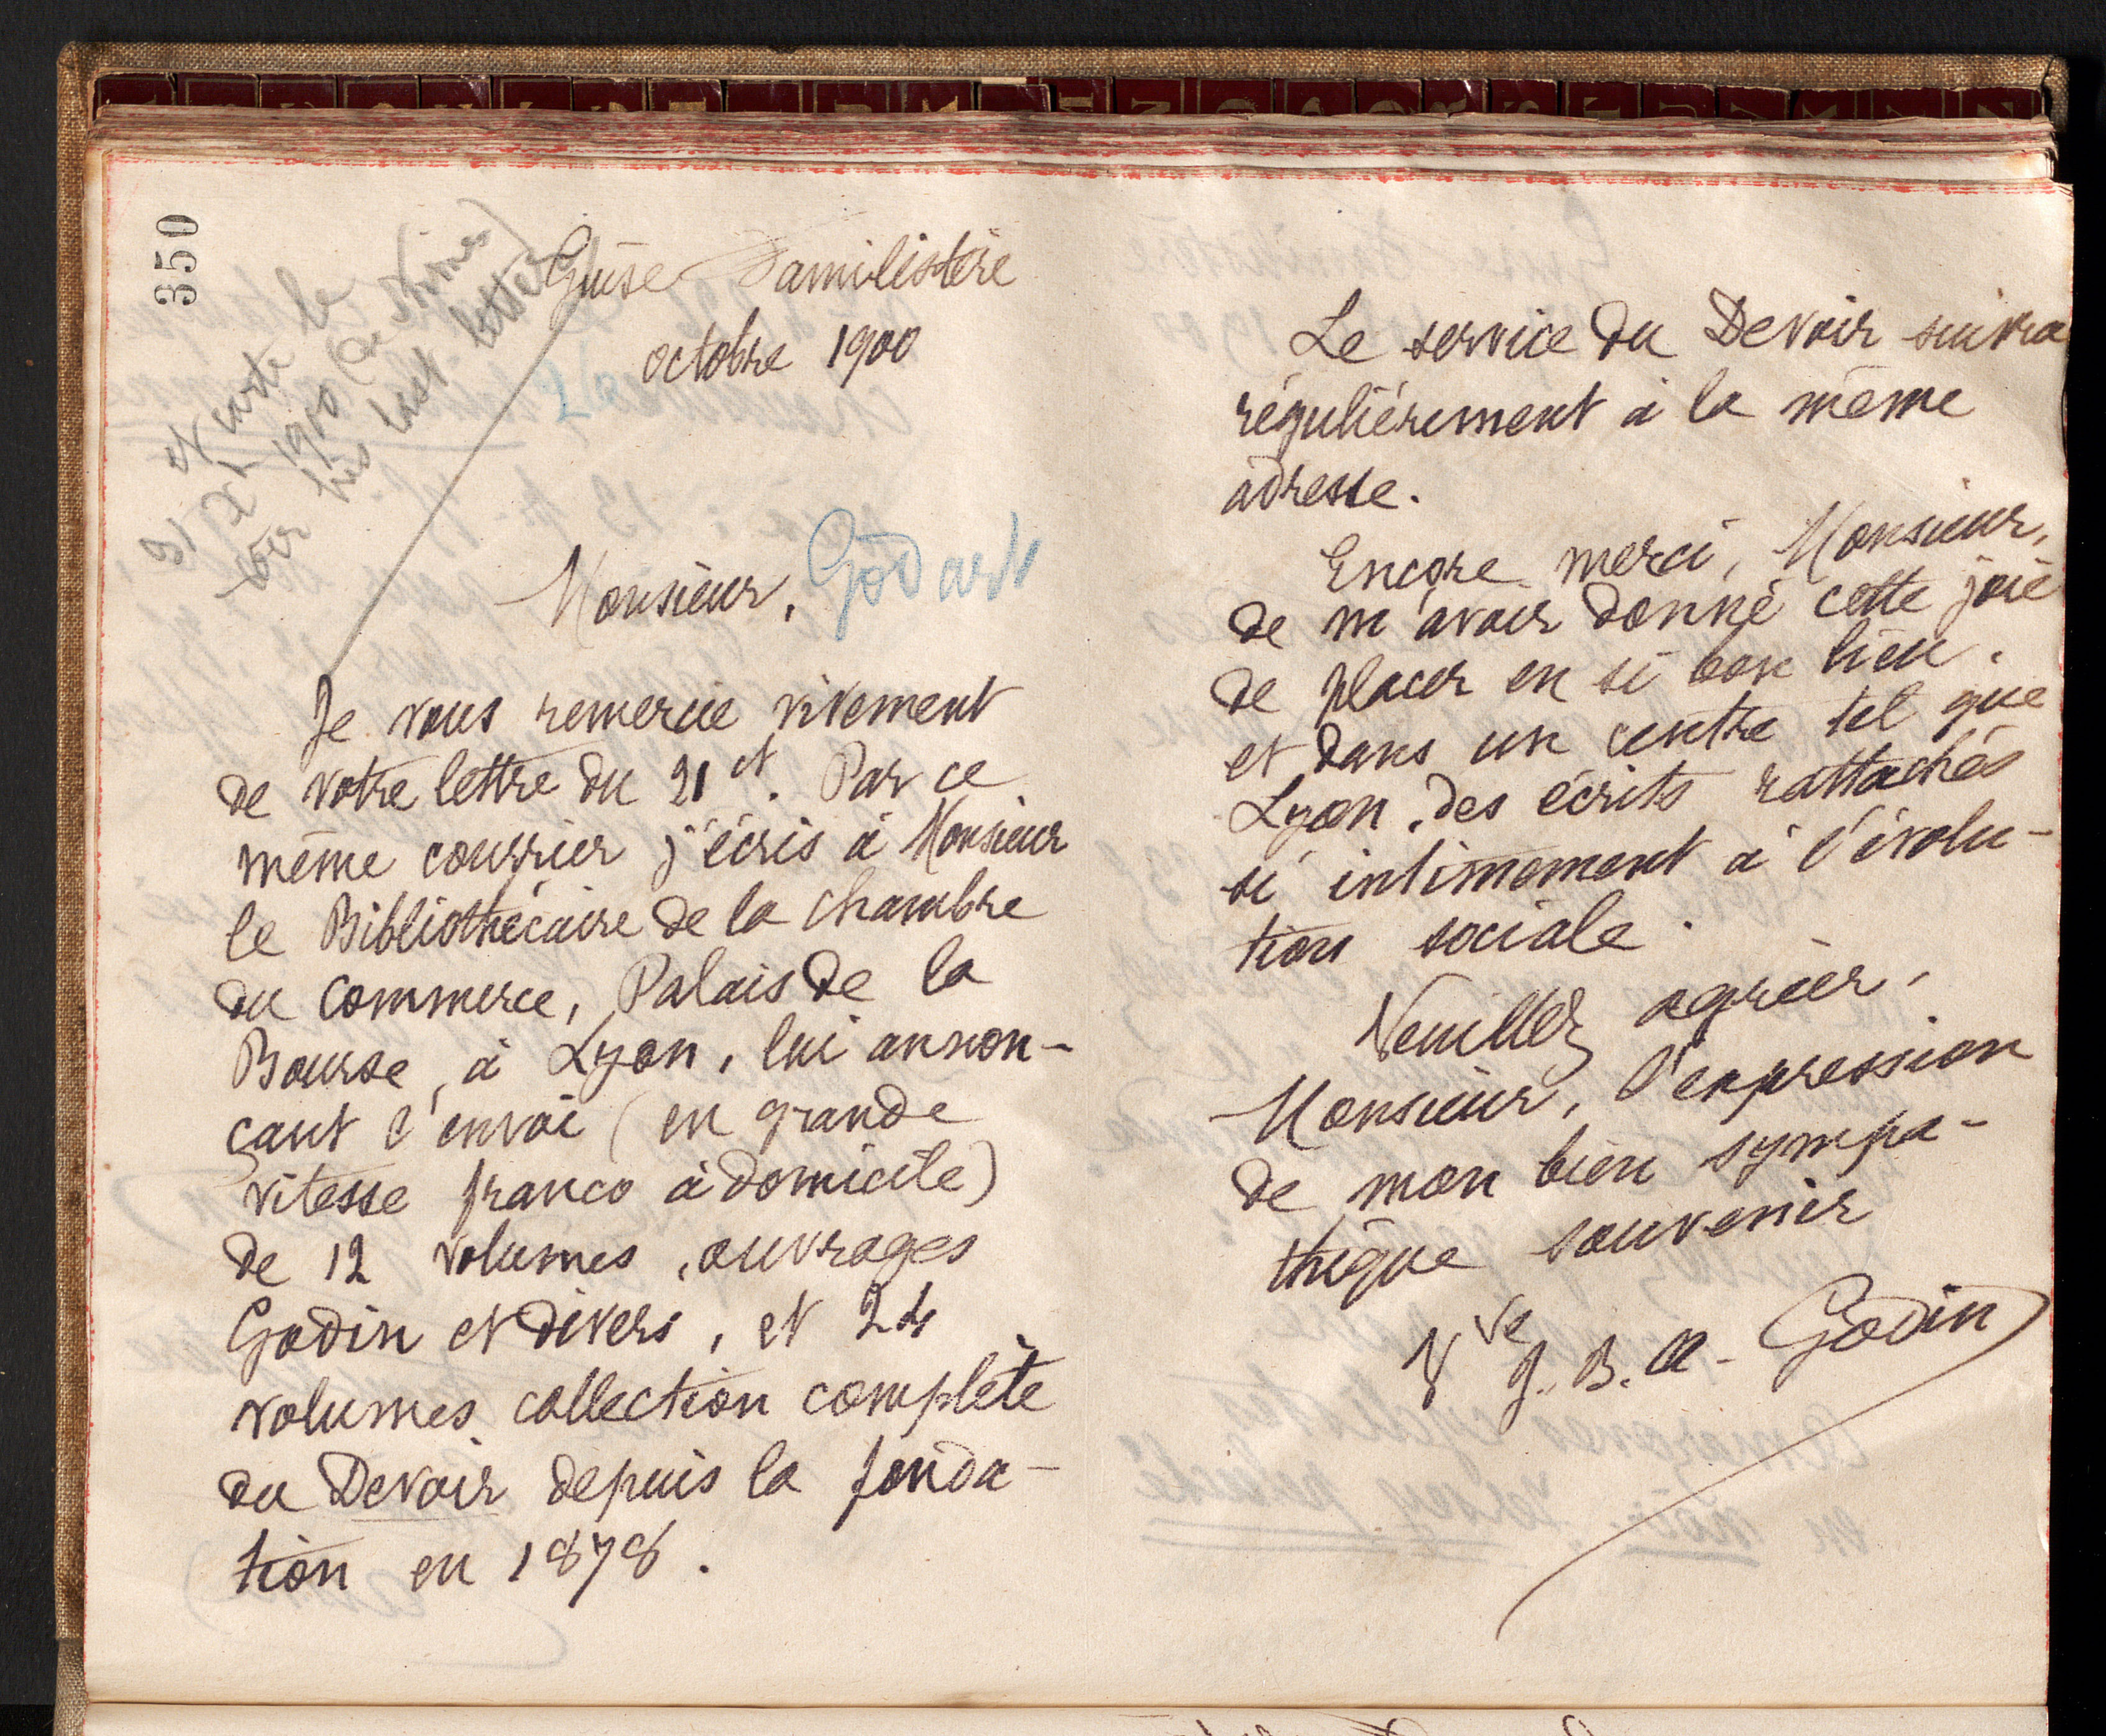 350
et carte le
31 X 1900 (de Nîmes)
voir his last letter
Guise Familistère
octobre 1900
Monsieur, Godart
Je vous remercie vivement
de votre lettre du 21 ct. Par ce
même courrier j'écris à Monsieur
le Bibliothécaire de la Chambre
du Commerce, Palais de la
Bourse, à Lyon, lui annon-
çant l'envoi (en grande
vitesse franco à domicile)
de 12 volumes, ouvrages
Godin et divers, et 24
volumes collection complète
du Devoir depuis la fonda-
tion en 1878.
Le service du Devoir suivra
régulièrement à la même
adresse.
Encore merci, Monsieur,
de m'avoir donné cette joie
de placer en si bon lieu,
et dans un centre tel que
Lyon, des écrits rattachés
si intimement à l'évolu-
tion sociale.
Veuillez agréer,
Monsieur, l'expression
de mon bien sympa-
thique souvenir
Vve J. B. A. Godin